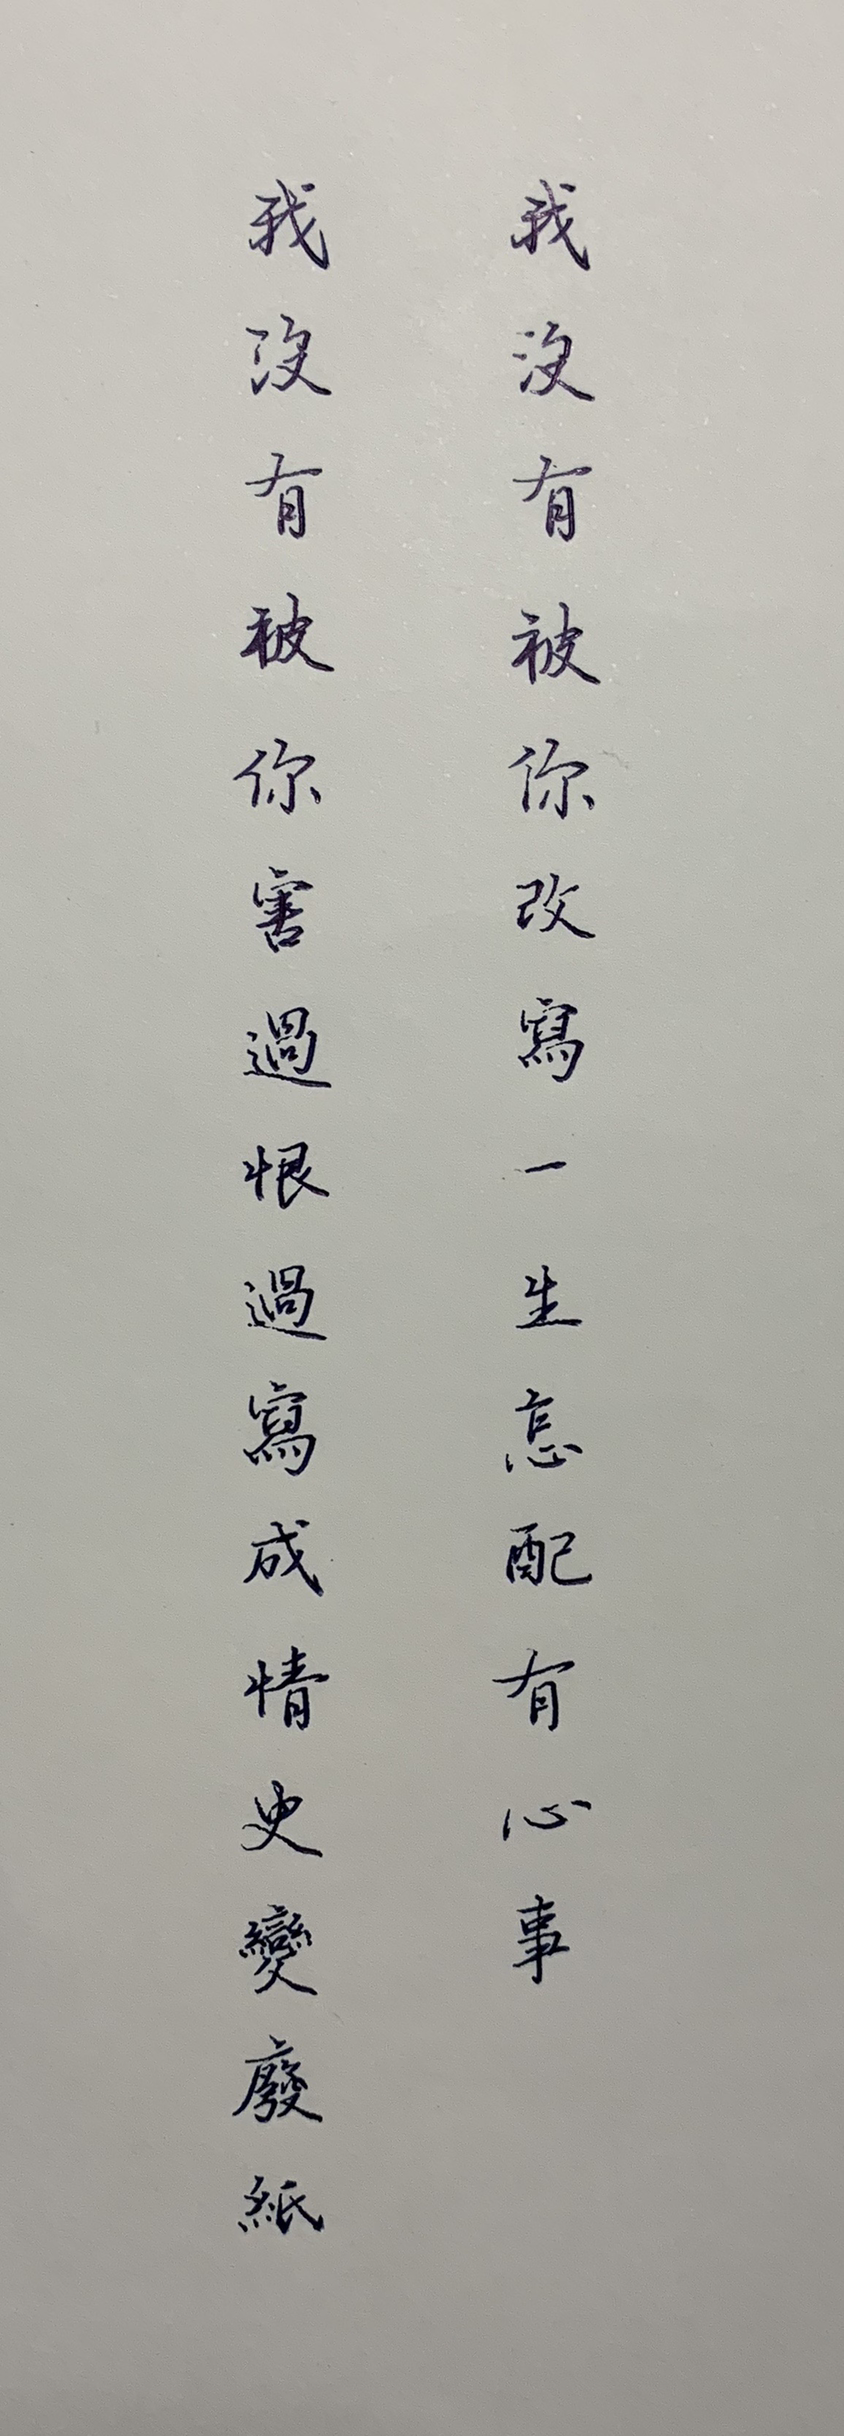 我沒有被你改寫一生怎配有心事
我沒有被你害過恨過寫成情史變廢紙